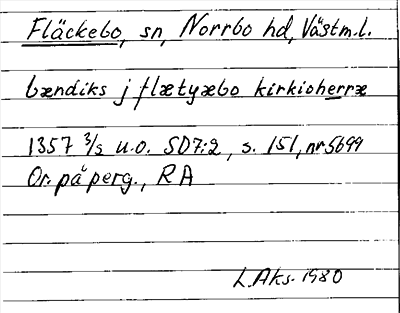 Fläckebo, sn, Norrbo hd, Västm.l.
bændiks j flætyæbo kirkioherræ
1357 3/5 u.o. SD7:2, s. 151, nr 5699
Or. på perg., RA
L.Aks. 1980